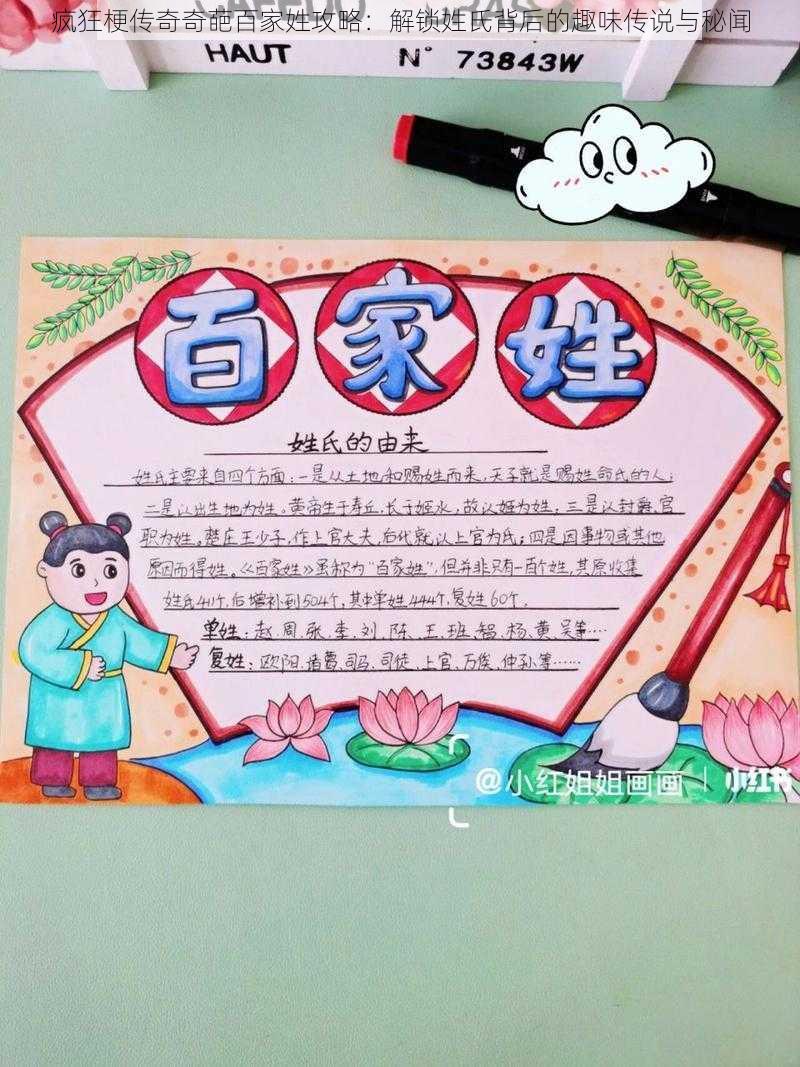 疯狂梗传奇奇葩百家姓攻略：解锁姓氏背后的趣味传说与秘闻
HAUT N° 73843W
百家姓
姓氏的由来
姓氏主要来自四个方面：一是从土地和赐姓而来，天子就是赐姓命氏的人；
二是以出生地为姓。黄帝生于寿丘，长于姬水，故以姬为姓；三是以封爵、官
职为姓。楚庄王少子，作上官大夫，后代就以上官为氏；四是因事物或其他
原因而得姓。《百家姓》虽称为“百家姓”，但并非只有一百个姓，其原收集
姓氏411个，后增补到504个，其中单姓444个，复姓60个。
单姓：赵、周、张、李、刘、陈、王、班、 杨、黄、吴等……
复姓：欧阳、诸葛、司马、司徒、上官、万俟、仲孙等……
@小红姐姐画画 | 小红书